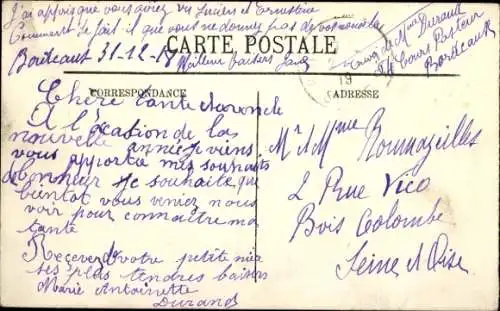 J'ai appris que vous aviez vu Lucien et Ernestine
Comment se fait il que vous ne donnez pas de vos nouvelles
CARTE POSTALE
Bordeaux 31-12-18
Meilleurs baisers
Envoi de Mme Durand
Cours Pasteur
Bordeaux
19
CORRESPONDANCE
ADRESSE
Chère tante
A l'ocasion de la
nouvelle année je viens
vous apporté mes souhaits
de bonheur Je souhaite que
bientot vous veniez nous
voir pour connaitre ma
tante
Recevez de votre petite nièce
ses plus tendres baisers
Marie Antoinette
Durand
Mr et Mme Roumazeilles
2 Rue Vico
Bois Colombe
Seine et Oise